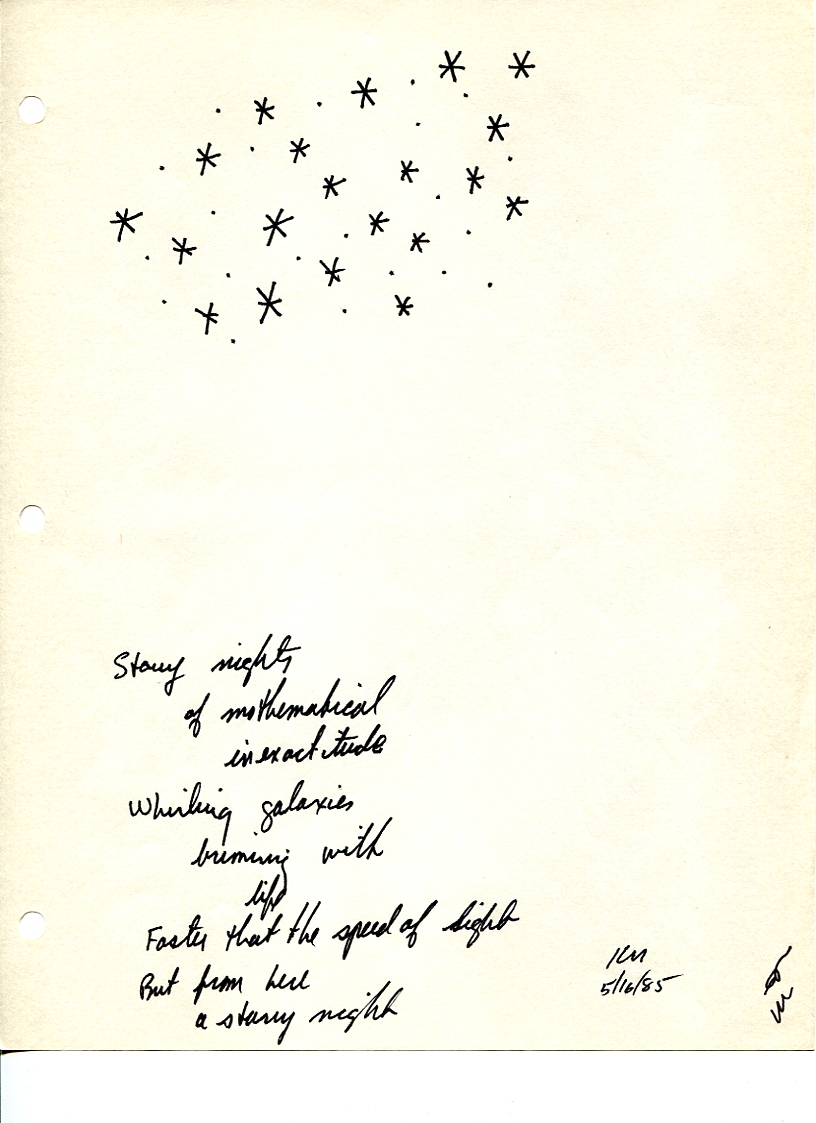 Starry nights
of mathematical
inexactitude
Whirling galaxies
briming with
life
Faster that the speed of light
But from here
a starry night
KM
5/16/85